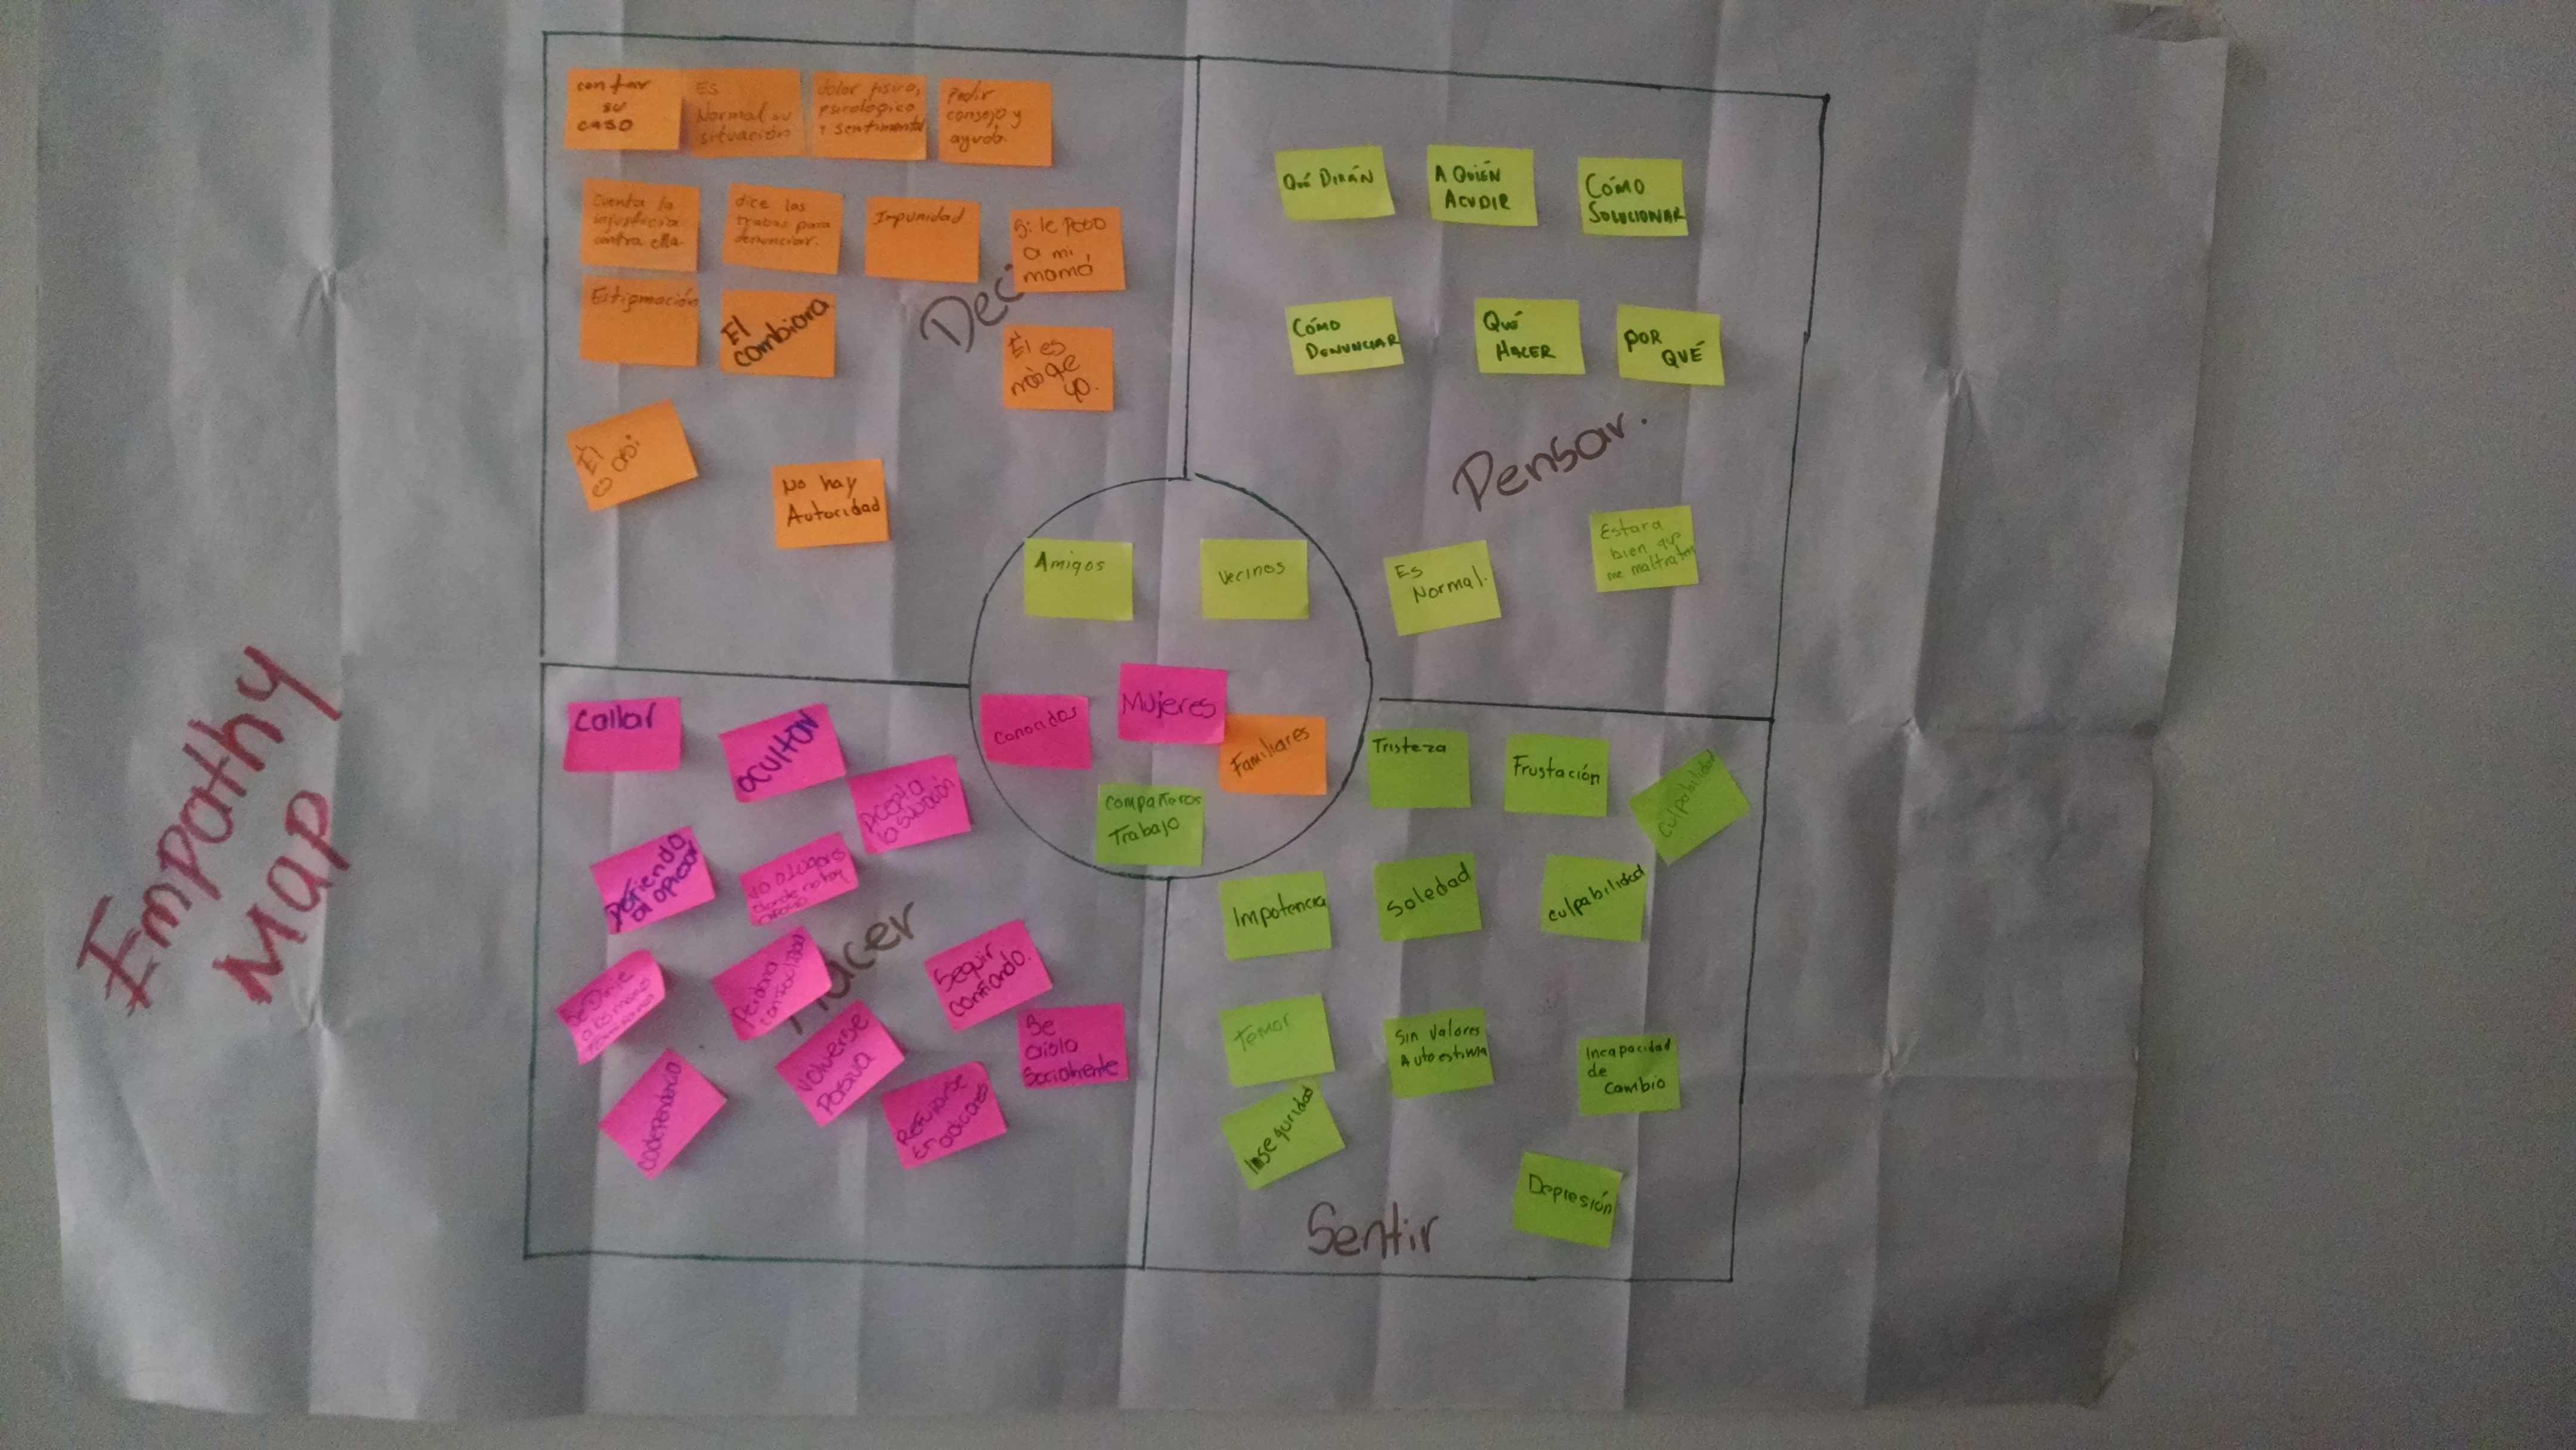 Empathy
Map
contar
su
caso
Es
Normal su
situación
dolor fisico,
psicologico
y sentimental
Pedir
consejo y
ayuda.
Cuenta la
injusticia
contra ella.
dice las
trabas para
denunciar.
Impunidad
Si le Paso
a mi
mamá
Estigmación
El
cambiara
Él es
más que
yo.
Él
es asi
No hay
Autoridad
Qué DIRÁN
A QUIÉN
ACUDIR
CÓMO
SOLUCIONAR
CÓMO
DENUNCIAR
QUÉ
HACER
POR
QUÉ
Pensar.
Es
Normal.
Estara
bien que
me maltraten
Amigos
Vecinos
Conocidos
Mujeres
Familiares
Compañeros
Trabajo
Callar
ocultar
Acepta
la situación
Defiendo
al opresor
donde no hay
Hacer
Seguir
confiando.
Se
aisla
Socialmente
Volverse
Pasiva
Refugiarse
En adicciones
codependencia
Tristeza
Frustación
culpabilidad
Impotencia
Soledad
culpabilidad
Temor
Sin Valores
Autoestima
Incapacidad
de
Cambio
Inseguridad
Depresión
Sentir